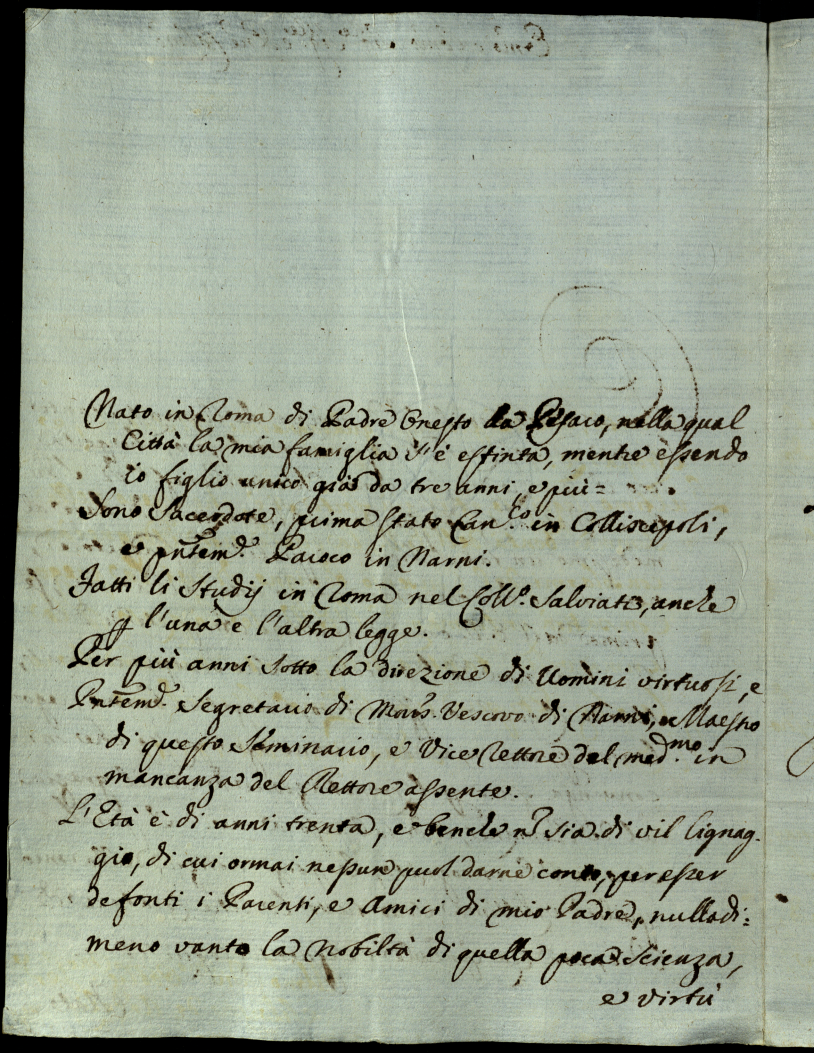 Nato in Roma di Padre Onesto da Pesaro, nella qual
Città la mia famiglia s'è estinta, mentre essendo
io figlio unico già da tre anni, e più=
Sono Sacerdote, prima stato Can.co in Colliscepoli,
e pntem.e Paroco in Narni.
Fatti li Studij in Roma nel Coll.o Salviati, anche
p l'una e l'altra legge.
Per più anni sotto la direzione di Uomini virtuosi, e
Pntem.e Segretario di Mons.r Vescovo di Narni, e Maestro
di questo Seminario, e Vice Rettore del med.mo in
mancanza del Rettore assente.
L'Età è di anni trenta, e benche n sia di vil lignag-
gio, di cui ormai nessun puol darne conto, per esser
defonti i Parenti, e Amici di mio Padre, nulladi=
meno vanto la nobiltà di quella poca Scienza,
e virtù